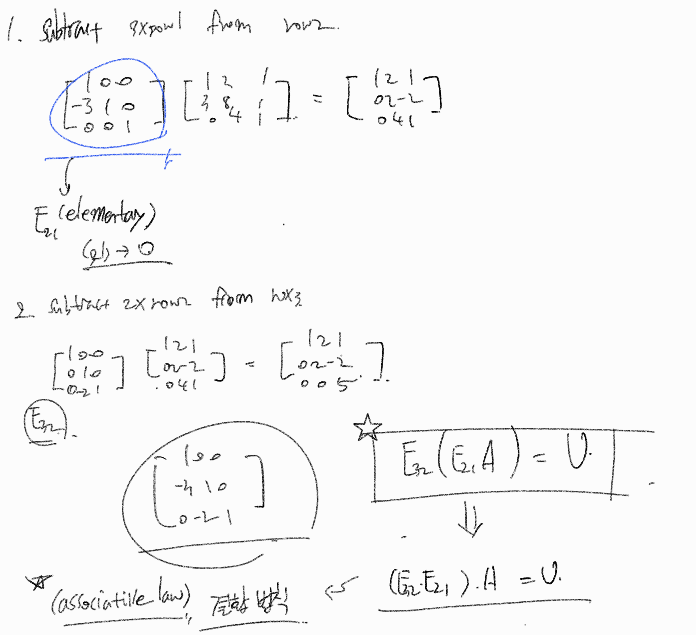 1. Subtract 3xrow1 from row2.
[1 0 0 [1 2 1 [1 2 1
-3 1 0 3 8 1 = 0 2 -2
0 0 1] 0 4 1] 0 4 1]
E21 (elementary)
(21) → 0
2 subtract 2xrow2 from row3
[1 0 0 [1 2 1 [1 2 1
0 1 0 0 2 -2 = 0 2 -2
0 -2 1] 0 4 1] 0 0 5].
E32.
[1 0 0
-3 1 0
0 -2 1]
☆ E32(E21A) = U.
⇓
(E32·E21).A = U.
★ (associative law), 결합 법칙 ⇐